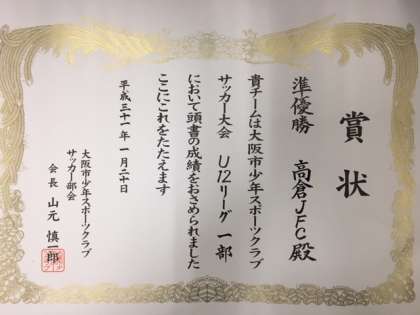 賞状
準優勝 高倉JFC殿
貴チームは大阪市少年スポーツクラブ
サッカー大会 U12リーグ一部
において頭書の成績をおさめられました
ここにこれをたたえます
平成三十一年一月二十日
大阪市少年スポーツクラブ
サッカー部会
会長 山元慎一郎